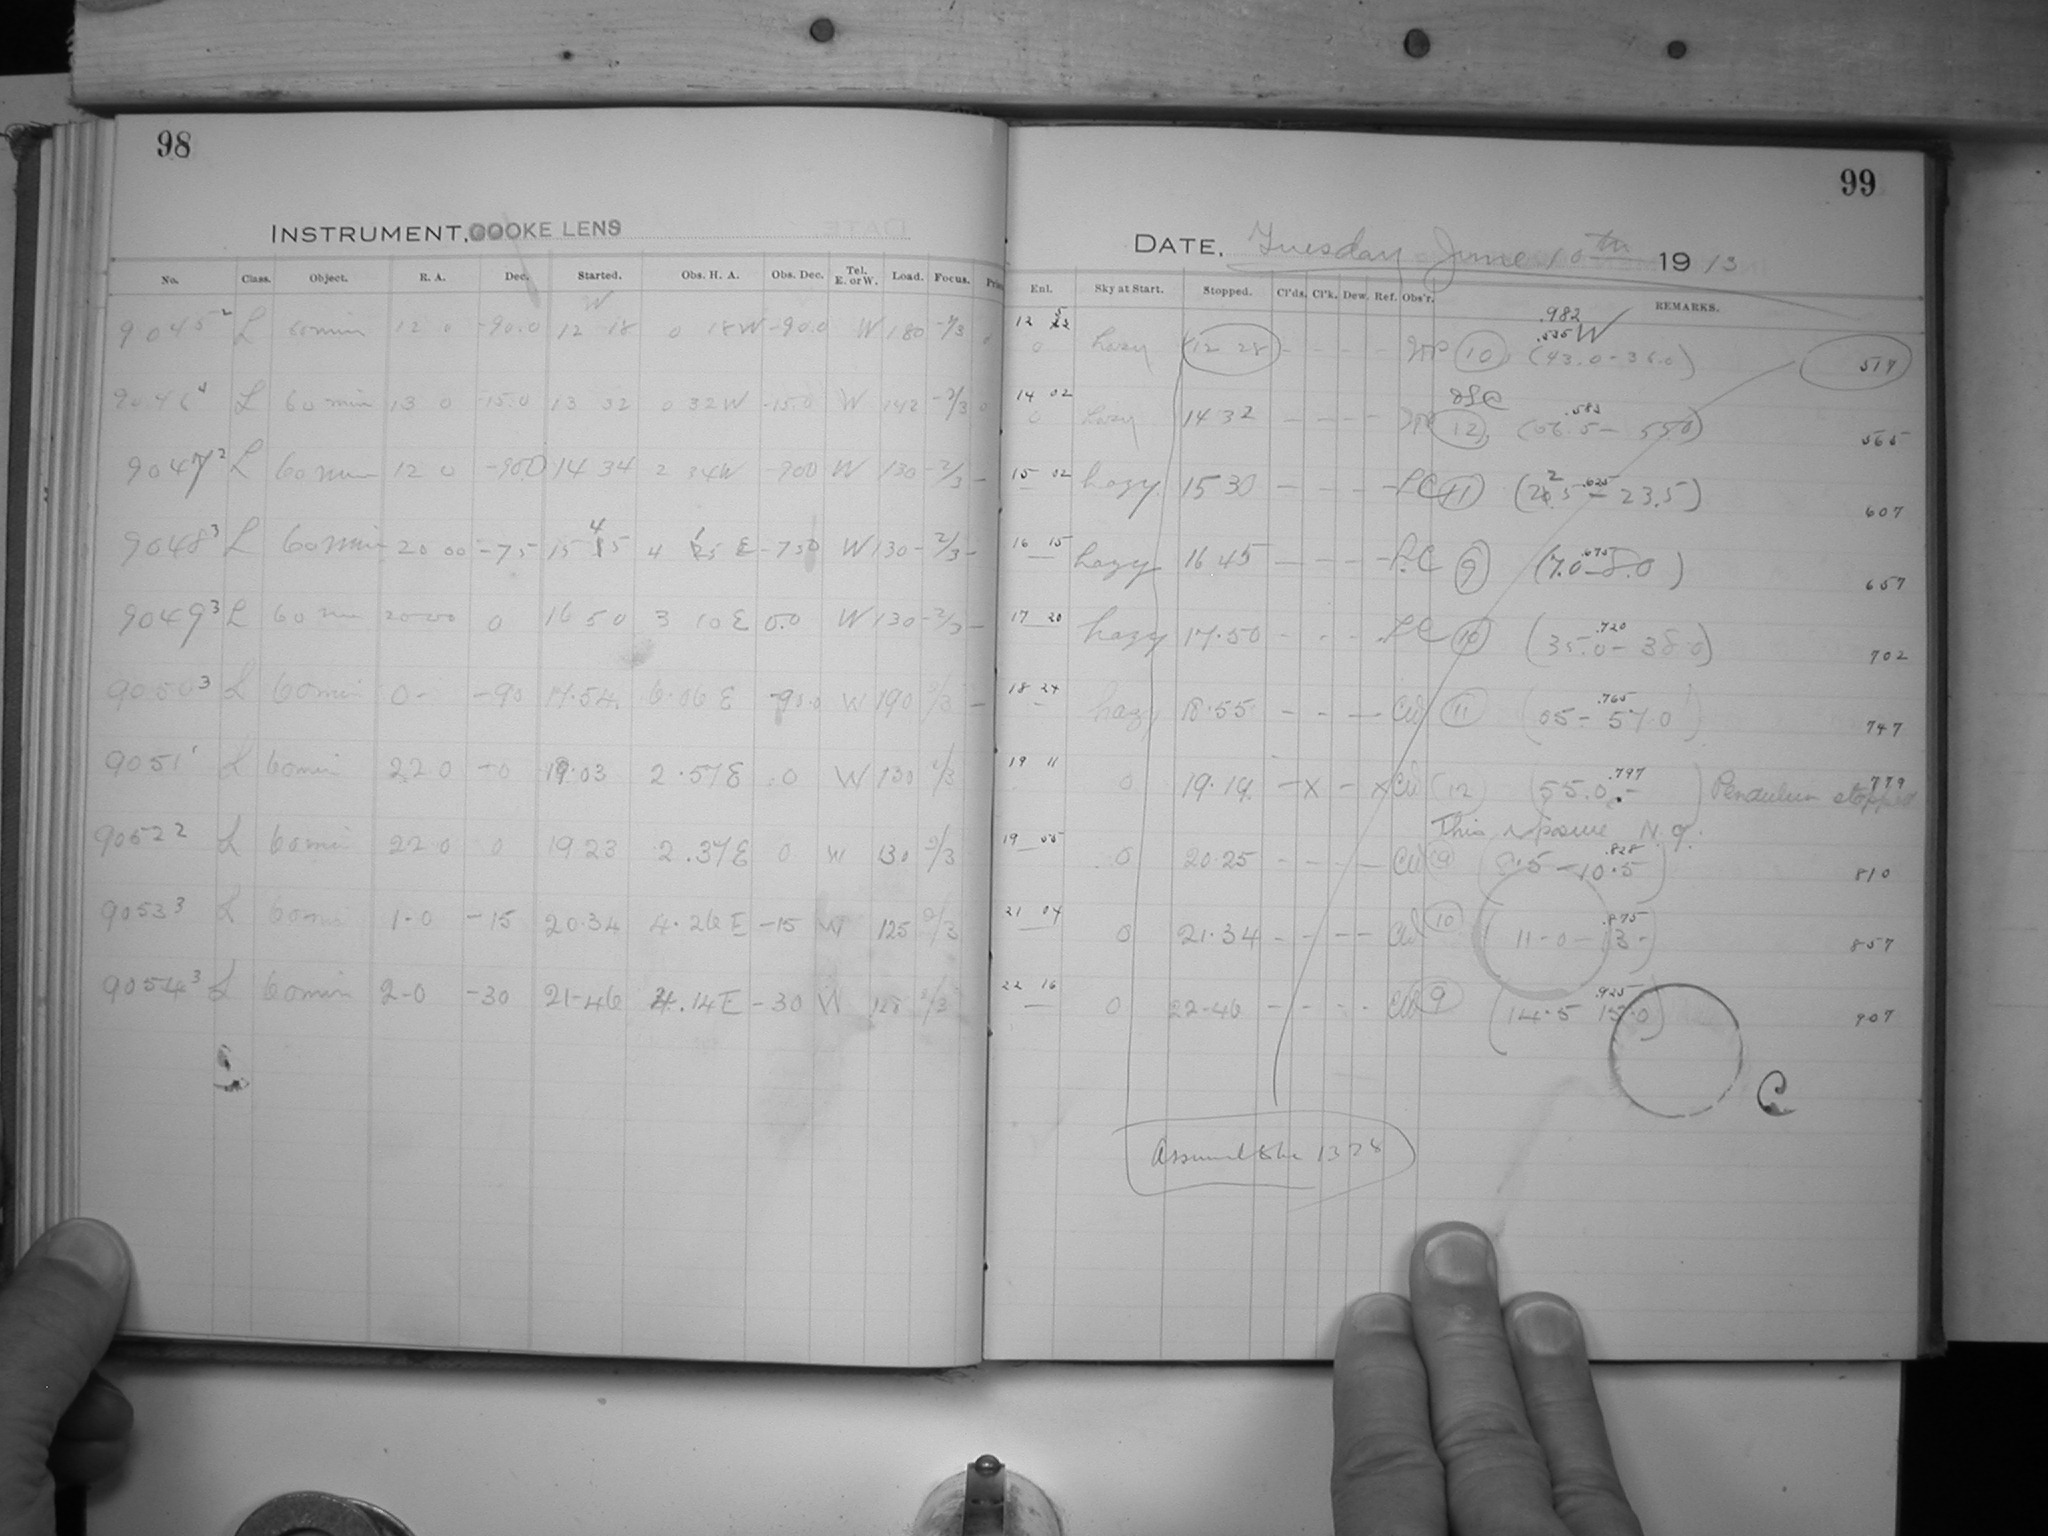 98
INSTRUMENT, COOKE LENS
No. Class. Object. R. A. Dec. Started. Obs. H. A. Obs. Dec. Tel. E. or W. Load. Focus.
W
9045 2 L 60 min 12 0 -90.0 12 18 0 18W -90.0 W 180 -2/3
9046 4 L 60 min 13 0 -15.0 13 32 0 32W -15.0 W 142 -2/3 0
9047 2 L 60 min 12 0 -90.0 14 34 2 34W -900 W 130 -2/3 -
9048 3 L 60 min 20 00 -75 15 45 4 E -750 W 130 -2/3 -
9049 3 L 60 min 2000 0 16 50 3 10 E 0.0 W 130 -2/3 -
9050 3 L 60 min 0- -90 17.54 6.06 E -90.0 W 190 2/3 -
9051 1 L 60 min 22 0 -0 19.03 2.57E 0 W 130 2/3
9052 2 L 60 min 22 0 0 19 23 2.37E 0 W 130 2/3
9053 3 L 60 min 1-0 -15 20.34 4.26E -15 W 125 2/3
9054 3 L 60 min 2-0 -30 21-46 4.14E -30 W 128 2/3
99
DATE, Tuesday June 10th 1913
Enl. Sky at Start. Stopped. Cl'ds. Cl'k. Dew. Ref. Obs'r. REMARKS.
.982
12 0 hazy 12 28 - - - - 10 .535 W (43.0-36.0) 517
14 02 0 hazy 14 32 - - - - 12 .583 (56.5-55.0) 565
15 02 hazy 15 30 - - - - LC 11 .625 23.5) 607
16 15 hazy 16 45 - - - - LC 9 .675 (7.0-8.0) 657
17 20 hazy 17.50 - - - - LC 10 .720 (35.0-38.0) 702
18 24 hazy 18.55 - - - - CW 11 .765 (55-57.0) 747
19 11 0 19.19 - x - x CW 12 .797 (55.0 - ) Pendulum stopped 779
This exposure N.g.
19 55 0 20.25 - - - - CW 9 .828 (8.5-10.5) 810
21 04 0 21.34 - - - - CW 10 .875 (11-0-13-) 857
22 16 0 22-46 - - - - CW 9 .925 (14.5 15.0) 907
C
Assumed to be 1328